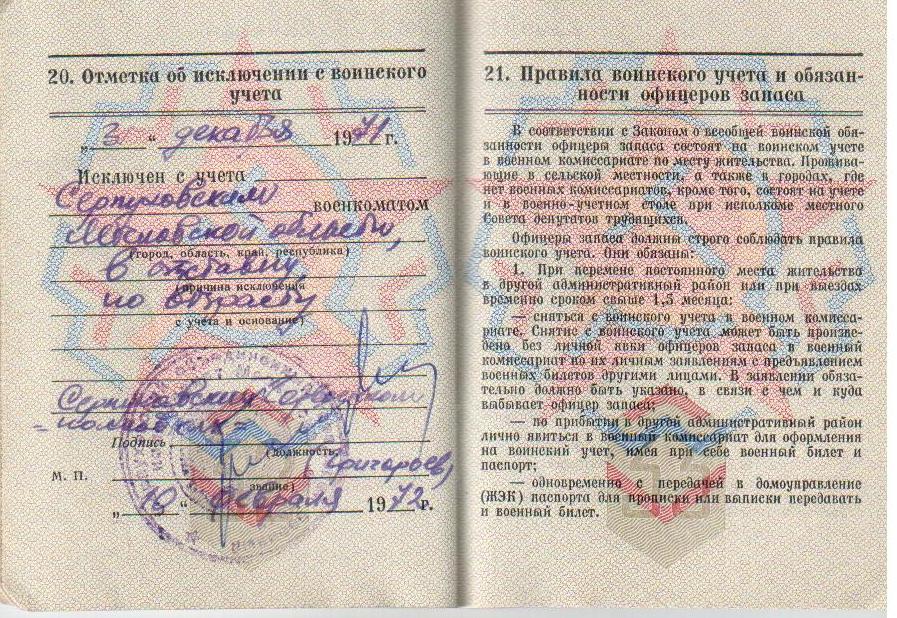 20. Отметка об исключении с воинского
учета
„ 3 “ декабря 1971 г.
Исключен с учета
Серпуховским военкоматом
Московской области,
(город, область, край, республика)
в отставку,
(причина исключения
по возрасту
с учета и основание)
Серпуховский
Подпись
(должность,
М. П.
Григорьев)
звание)
„ 18 “ февраля 1972 г.
21. Правила воинского учета и обязан-
ности офицеров запаса
В соответствии с Законом о всеобщей воинской обя-
занности офицеры запаса состоят на воинском учете
в военном комиссариате по месту жительства. Прожива-
ющие в сельской местности, а также в городах, где
нет военных комиссариатов, кроме того, состоят на учете
и в военно-учетном столе при исполкоме местного
Совета депутатов трудящихся.
Офицеры запаса должны строго соблюдать правила
воинского учета. Они обязаны:
1. При перемене постоянного места жительства
в другой административный район или при выездах
временно сроком свыше 1,5 месяца:
— сняться с воинского учета в военном комисса-
риате. Снятие с воинского учета может быть произве-
дено без личной явки офицеров запаса в военный
комиссариат по их личным заявлениям с предъявлением
военных билетов другими лицами. В заявлении обяза-
тельно должно быть указано, в связи с чем и куда
выбывает офицер запаса;
— по прибытии в другой административный район
лично явиться в военный комиссариат для оформления
на воинский учет, имея при себе военный билет и
паспорт;
— одновременно с передачей в домоуправление
(ЖЭК) паспорта для прописки или выписки передавать
и военный билет.